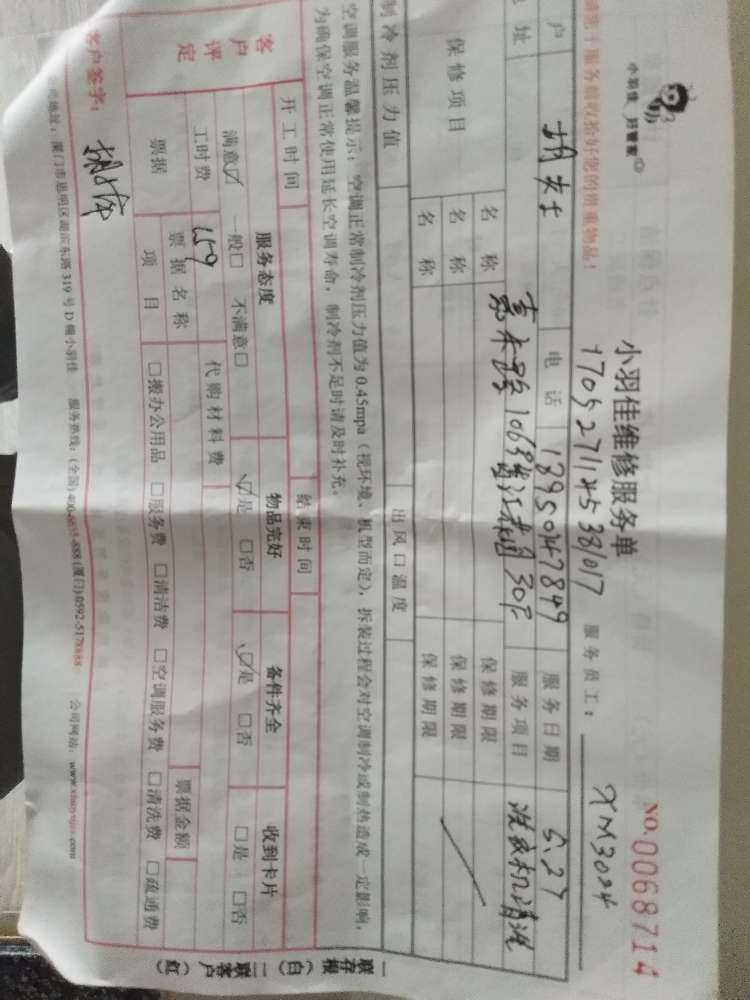 小羽佳 好管家
小羽佳维修服务单
NO.0068714
1705271145381017
服务员工: XM3024
服务前收拾好您的贵重物品!
户 胡女士 电话 18950147849 服务日期 5.27
地址 1063 30F 服务项目 洗衣机清洗
保修项目 名称 保修期限
名称 保修期限
名称 保修期限
制冷剂压力值 出风口温度
空调服务温馨提示:空调正常制冷剂压力值为0.45mpa(视环境、机型而定),拆装过程会对空调制冷或制热造成一定影响,
为确保空调正常使用延长空调寿命,制冷剂不足时请及时补充。
开工时间 结束时间
客户评定 服务态度 物品完好 备件齐全 收到卡片
满意☑ 一般□ 不满意□ ☑是 □否 ☑是 □否 □是 □否
工时费 159 代购材料费
票据 票据名称 票据金额
项目 □搬办公用品 □服务费 □清洁费 □空调服务费 □清洗费 □疏通费
客户签字:
公司地址:厦门市思明区湖滨东路319号D幢小羽佳 服务热线:(全国)400-6655-888 (厦门)0592-5178888 公司网站:www.xiaoyujia.com
一联存根(白)
二联客户(红)